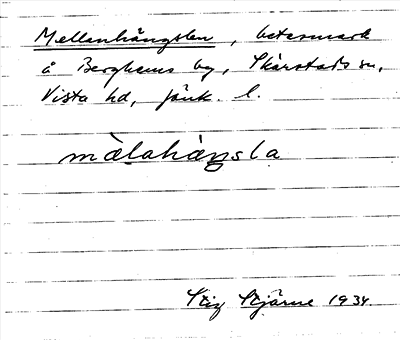 Mellanhängslen, betesmark
å Berghems by, Skärstads sn,
Vista hd, Jönk. l.
mälahängsla
Stig Stjärne 1934.